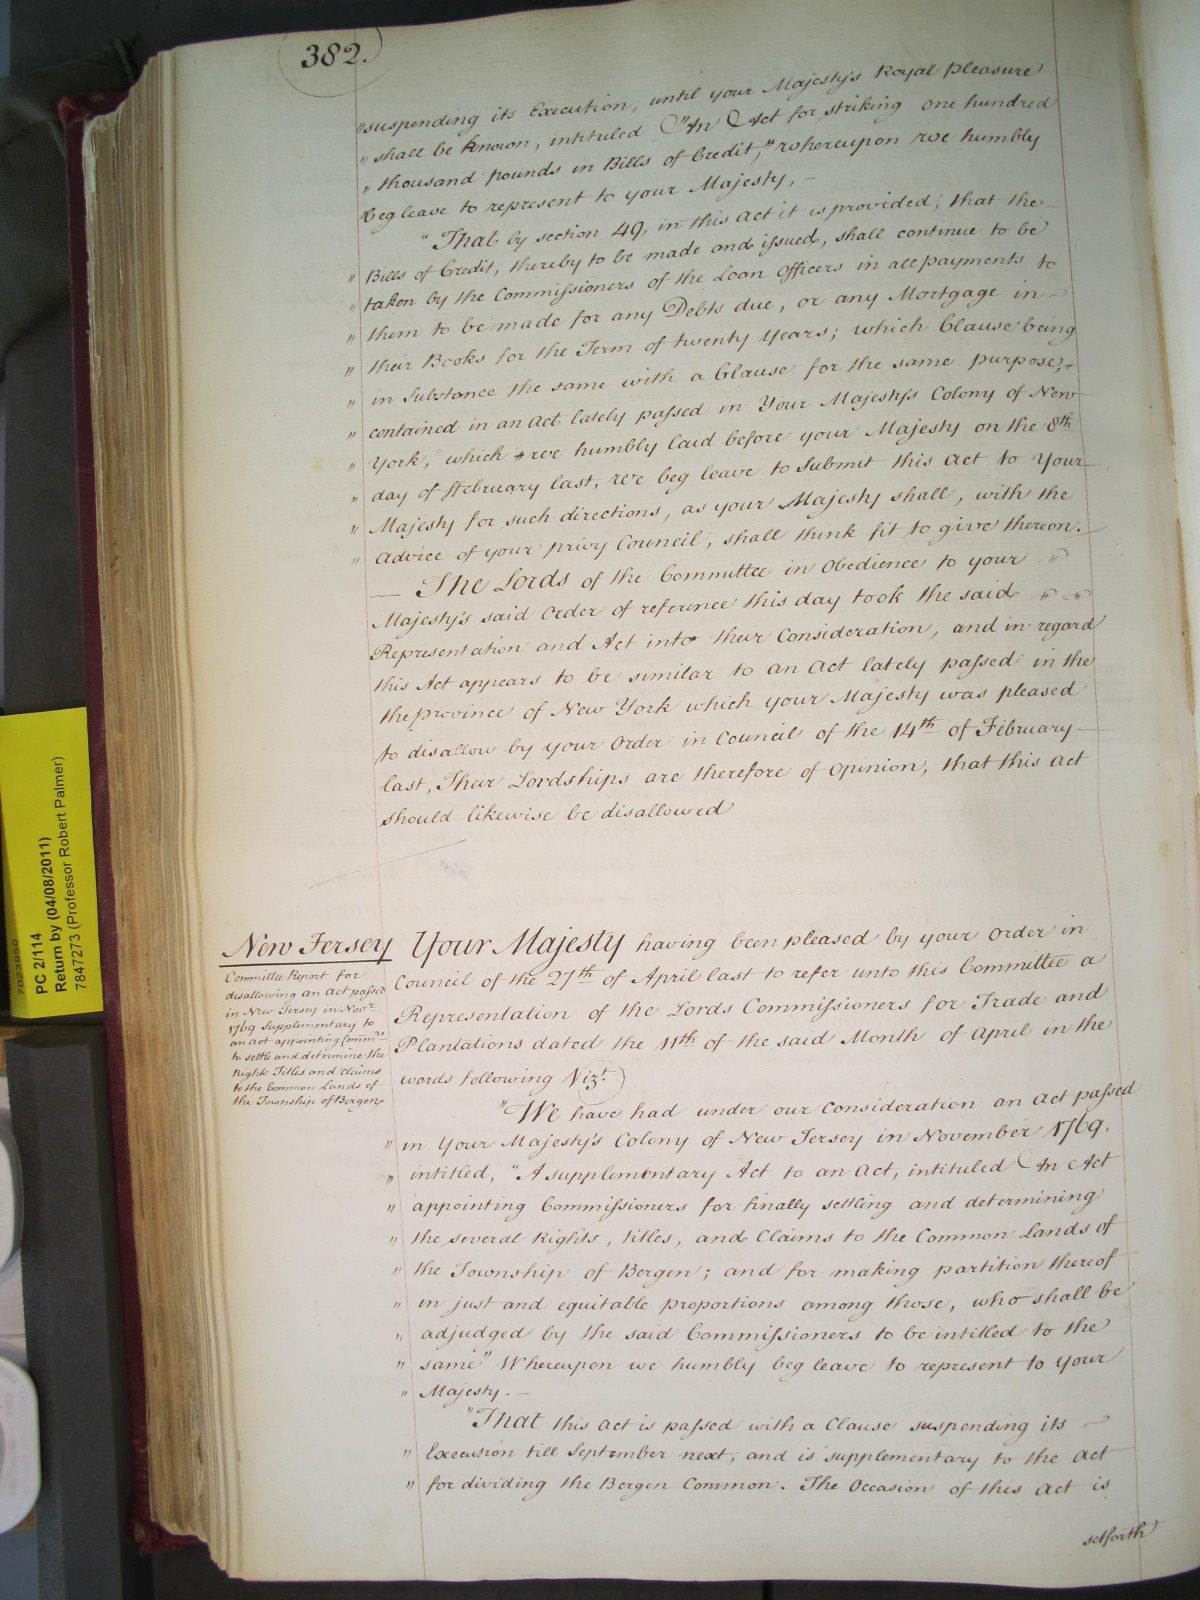 382.
"suspending its Execution, until your Majesty's Royal Pleasure
" shall be known, intituled "An Act for striking one hundred
" thousand pounds in Bills of Credit," whereupon we humbly
beg leave to represent to your Majesty, —
"That by section 49, in this Act it is provided, that the —
" Bills of Credit, thereby to be made and issued, shall continue to be
" taken by the Commissioners of the Loan Officers in all payments to
" them to be made for any Debts due, or any Mortgage in —
" their Books for the Term of twenty Years; which Clause being
" in Substance the same with a Clause for the same purpose,
" contained in an Act lately passed in Your Majesty's Colony of New
" York, which we humbly laid before your Majesty on the 8th
" day of February last, we beg leave to Submit this Act to Your
" Majesty for such directions, as your Majesty shall, with the
" Advice of your privy Council, shall think fit to give thereon. —
— The Lords of the Committee in Obedience to your "
Majesty's said Order of reference this day took the said " "
Representation and Act into their Consideration, and in regard
this Act appears to be similar to an Act lately passed in the
the province of New York which your Majesty was pleased
to disallow by your Order in Council of the 14th of February —
last, Their Lordships are therefore of Opinion, that this Act
should likewise be disallowed
New Jersey
Committee Report for
disallowing an Act passed
in New Jersey in Novr.
1769 Supplementary to
an Act appointing Commrs.
to settle and determine the
Right Titles and Claims
to the Common Lands of
the Township of Bergen
Your Majesty having been pleased by your Order in
Council of the 27th of April last to refer unto this Committee a
Representation of the Lords Commissioners for Trade and
Plantations dated the 11th of the said Month of April in the
words following Vizt.)
"We have had under our Consideration an Act passed
" in Your Majesty's Colony of New Jersey in November 1769.
" intitled, "A supplementary Act to an Act, intituled An Act
" appointing Commissioners for finally settling and determining
" the several Rights, titles, and Claims to the Common Lands of
" the Township of Bergen; and for making partition thereof
" in just and equitable proportions among those, who shall be
" adjudged by the said Commissioners to be intitled to the
" same" Whereupon we humbly beg leave to represent to your
" Majesty. —
"That this Act is passed with a Clause suspending its —
" Execution till September next, and is supplementary to the Act
" for dividing the Bergen Common. The Occasion of this Act is
setforth
PC 2/114
Return by (04/08/2011)
7847273 (Professor Robert Palmer)